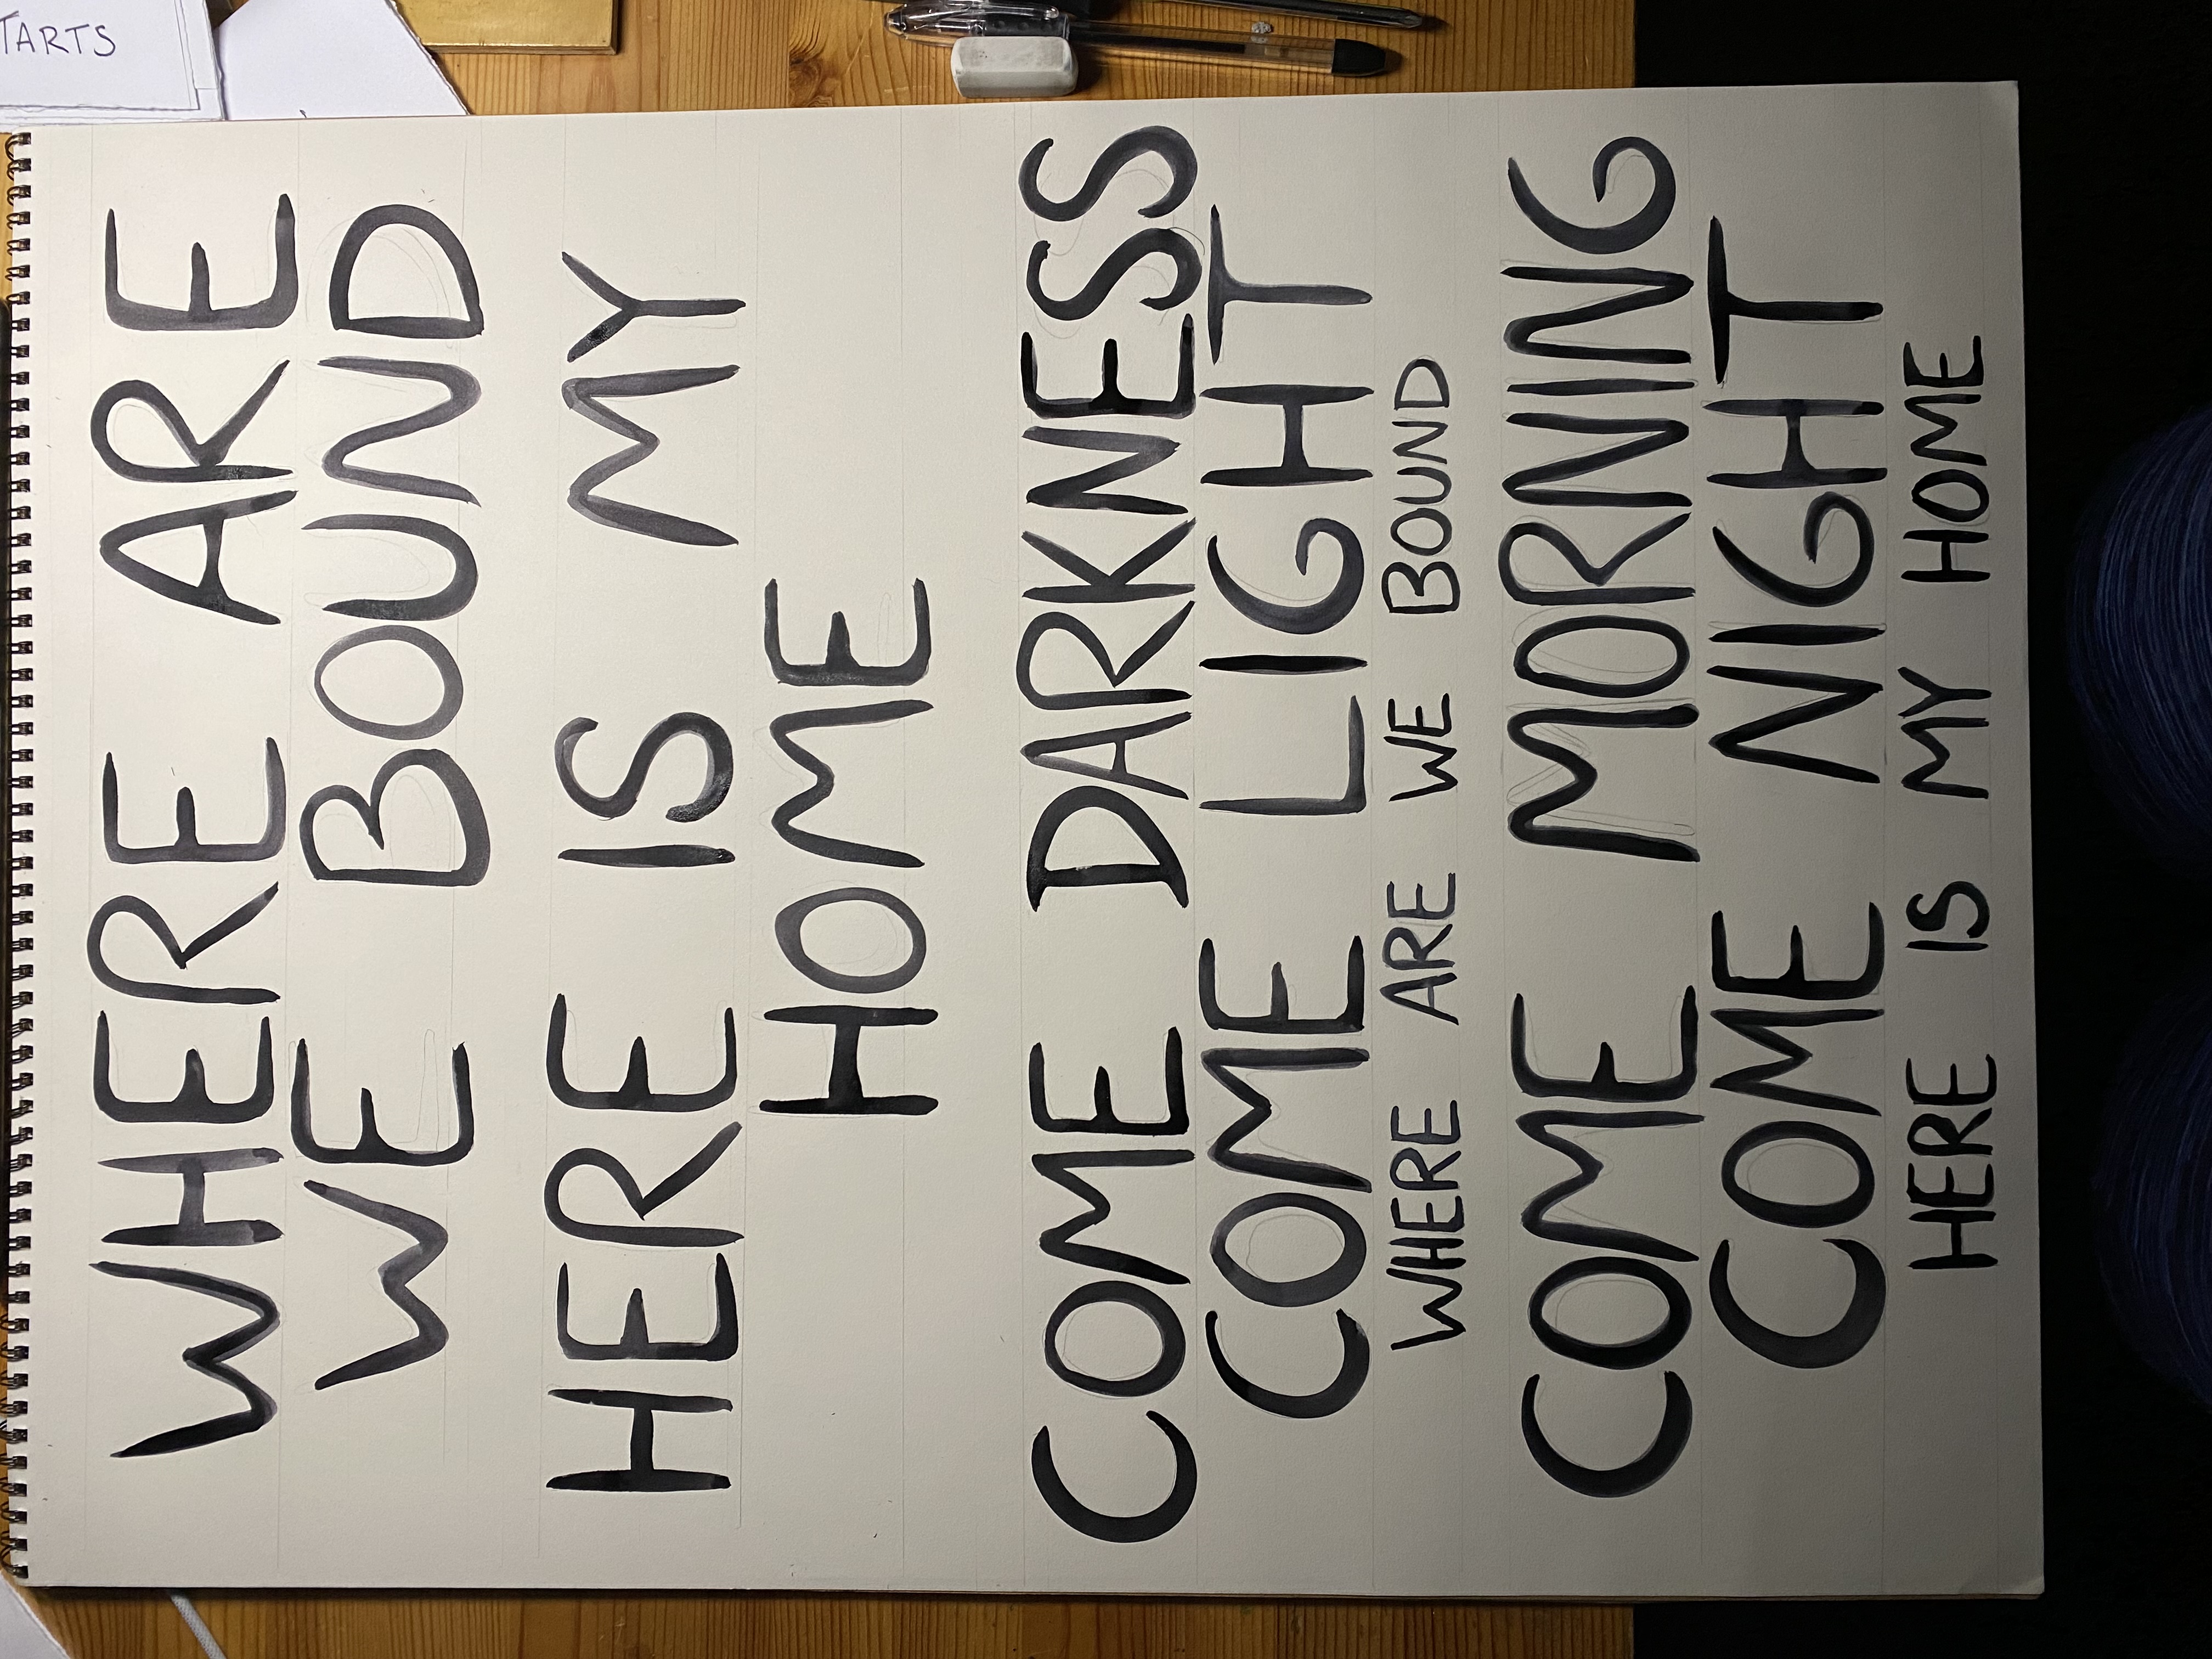 WHERE ARE
WE BOUND
HERE IS MY
HOME
COME DARKNESS
COME LIGHT
WHERE ARE WE BOUND
COME MORNING
COME NIGHT
HERE IS MY HOME
TARTS